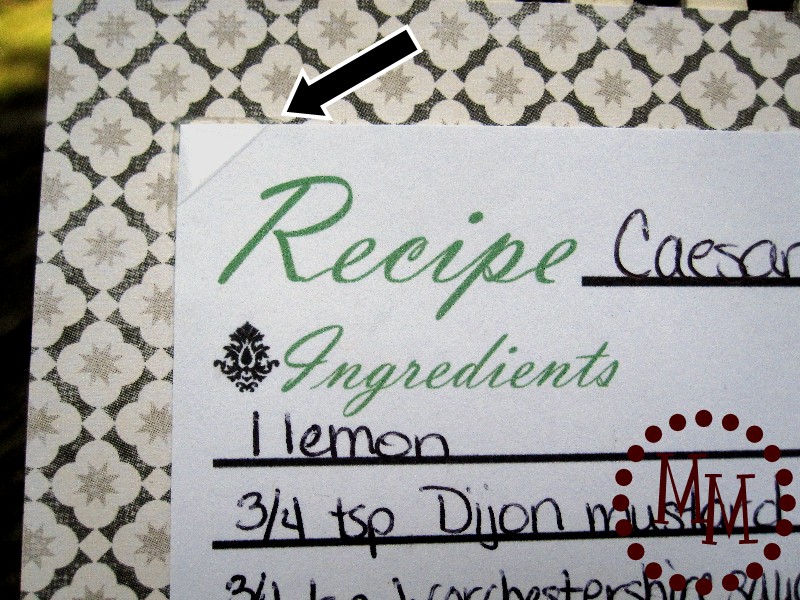 Recipe Caesar
Ingredients
1 lemon
3/4 tsp Dijon mustard
3/4 tsp worchestershire
MM